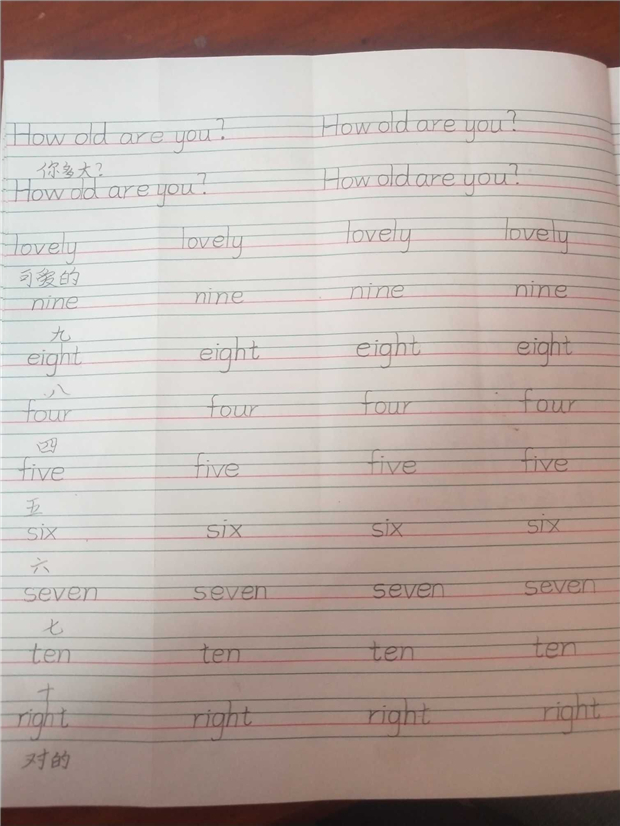 How old are you? How old are you?
你多大?
How old are you? How old are you?
lovely lovely lovely lovely
可爱的
nine nine nine nine
九
eight eight eight eight
八
four four four four
四
five five five five
五
six six six six
六
seven seven seven seven
七
ten ten ten ten
十
right right right right
对的